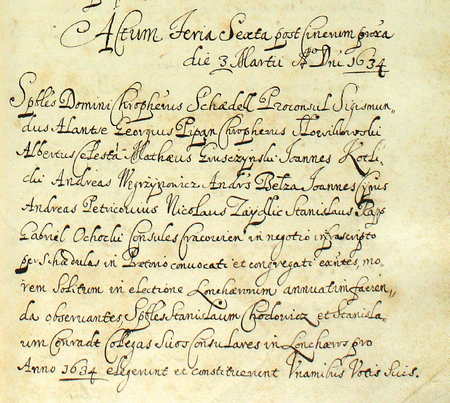 Actum Feria Sexta post Cinerum proxa
die 3 Martii Ao Dni 1634
Spbles Domini Chropherus Schædell Proconsul Sigismun=
dus Alantse Georgius Pipan Chropherus
Albertus Celesta Mathæus Gruszczynski Ioannes Kotli=
cki Andreas Węgrzynowicz Andrs Belza Ioannes Cyrus
Andreas Petricovius Nicolaus Zayglic Stanislaus
Gabriel Ochocki Consules Cracovien in negotio infrascripto
per Schædulas in Prætorio convocati et congregati exntes, mo=
rem solitum in electione Loncharorum annuatim facien=
da observantes, Spbles Stanislaum Chodowicz et Stanisla=
um Conradt Collegas Suos Consulares in Loncharos pro
Anno 1634 elegerunt et constituerunt Vnamibus Votis Suis.